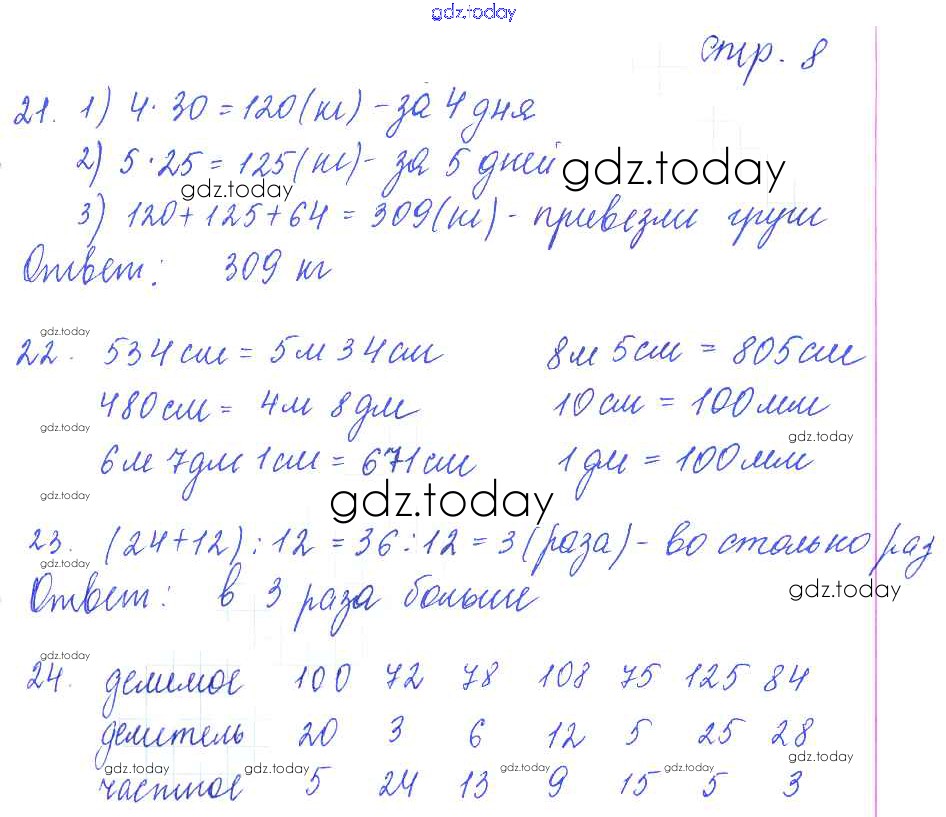 gdz.today
стр. 8
21. 1) 4 · 30 = 120 (кг) - за 4 дня
2) 5 · 25 = 125 (кг) - за 5 дней
gdz.today gdz.today
3) 120 + 125 + 64 = 309 (кг) - привезли груш
Ответ: 309 кг
gdz.today
22. 534 см = 5 м 34 см 8 м 5 см = 805 см
480 см = 4 м 8 дм 10 см = 100 мм
gdz.today gdz.today
6 м 7 дм 1 см = 671 см 1 дм = 100 мм
gdz.today gdz.today
23. (24 + 12) : 12 = 36 : 12 = 3 (раза) - во столько раз
gdz.today gdz.today
Ответ: в 3 раза больше
gdz.today
24. делимое 100 72 78 108 75 125 84
делитель 20 3 6 12 5 25 28
gdz.today gdz.today gdz.today gdz.today gdz.today
частное 5 24 13 9 15 5 3